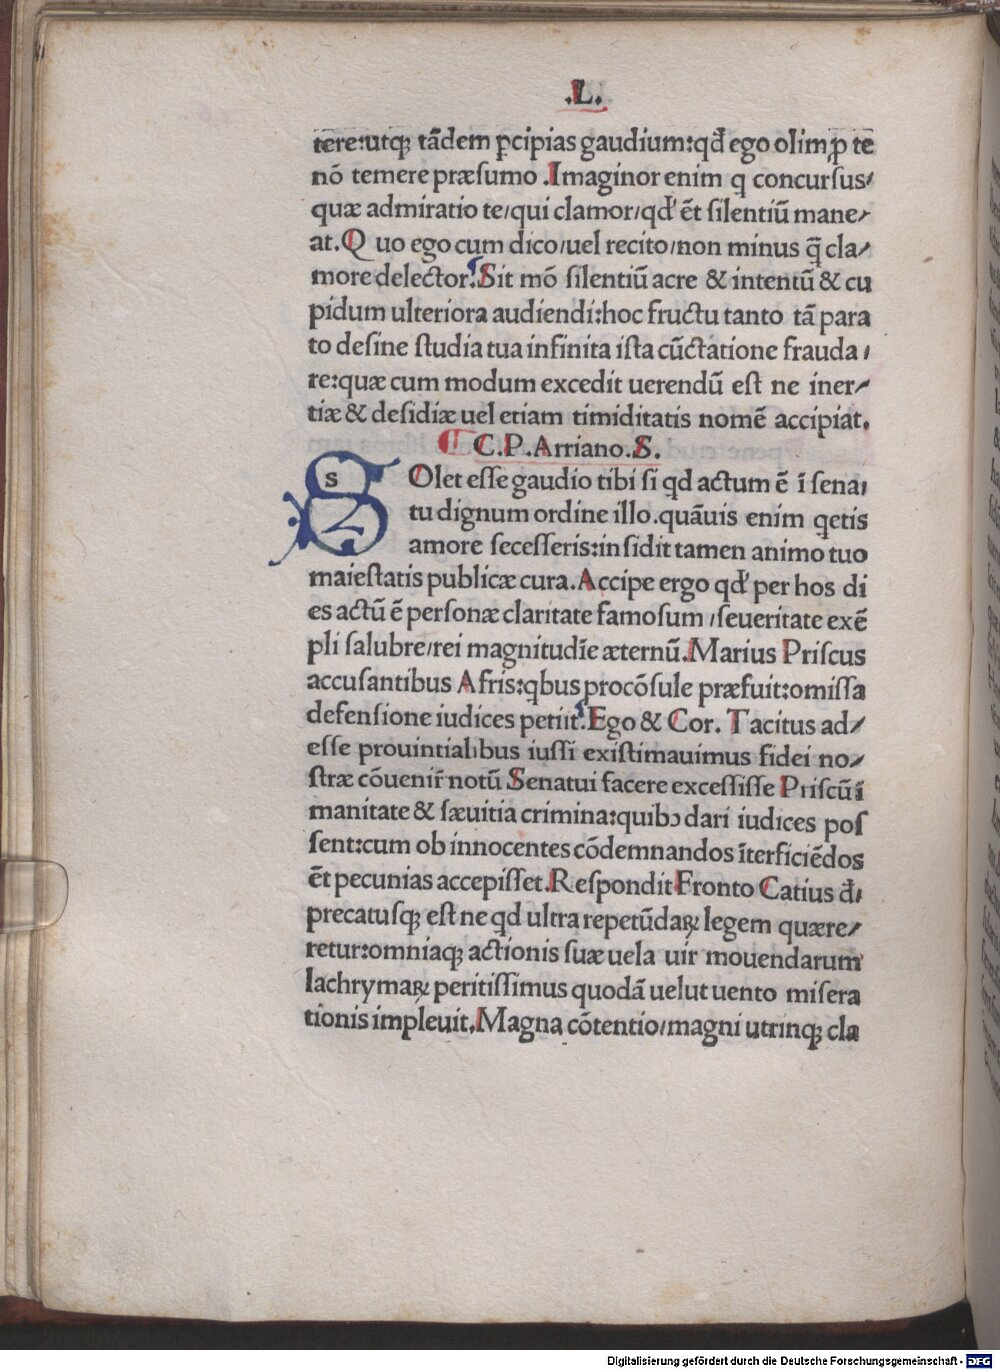 .L.
tere:utqꝫ tādem ꝑcipias gaudium:qđ ego olim ꝓ te
nō temere præsumo .Imaginor enim q concursus/
quæ admiratio te/qui clamor/qđ ēt silentiū mane/
at.Q uo ego cum dico/uel recito/non minus q̄ cla/
more delector.Sit mō silentiū acre & intentū & cu
pidum ulteriora audiendi:hoc fructu tanto tā para
to desine studia tua infinita ista cūctatione frauda/
re:quæ cum modum excedit uerendū est ne iner/
tiæ & desidiæ uel etiam timiditatis nomē accipiat.
C.P.Arriano.S.
s
SOlet esse gaudio tibi si qd actum ē ī sena/
tu dignum ordine illo.quāuis enim qetis
amore secesseris:insidit tamen animo tuo
maiestatis publicæ cura.Accipe ergo qđ per hos di
es actū ē personæ claritate famosum /seueritate exē
pli salubre/rei magnitudīe æternū.Marius Priscus
accusantibus Afris:qbus procōsule præfuit:omissa
defensione iudices petiit.Ego & Cor. Tacitus ad/
esse prouintialibus iussi existimauimus fidei no/
stræ cōuenir̄ notū Senatui facere excessisse Priscū ī
manitate & sæuitia crimina:quibꝰ dari iudices pos
sent:cum ob innocentes cōdemnandos īterficiēdos
ēt pecunias accepisset.Respondit Fronto Catius đ/
precatusqꝫ est ne qd ultra repetūdaꝝ legem quære/
retur:omniaqꝫ actionis suæ uela uir mouendarum
lachrymaꝝ peritissimus quodā uelut uento misera
tionis impleuit.Magna cōtentio/magni utrinqꝫ cla
Digitalisierung gefördert durch die Deutsche Forschungsgemeinschaft - DFG